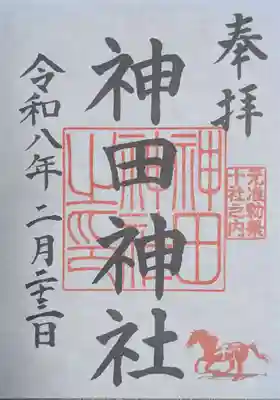 奉拝
元准勅祭
十社之内
神田神社
神田神社之印
令和八年二月二十三日